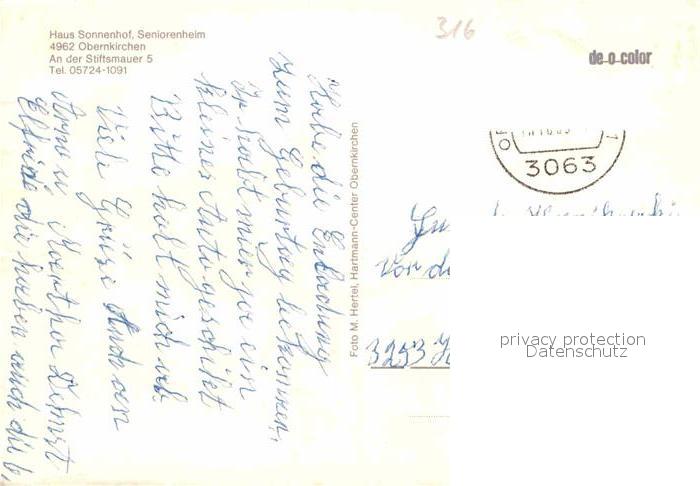 Haus Sonnenhof, Seniorenheim
4962 Obernkirchen
An der Stiftsmauer 5
Tel. 05724-1091
316
de-o-color
3063
Habe die Einladung
zum Geburtag bekommen,
Ir habt mier ja ein
kleines Auto geschikt
Bitte holt mich ab.
Viele Grüse
Arno u. Martha
Elfride die haben auch die
Foto M. Hertel, Hartmann-Center Obernkirchen
3253
privacy protection
Datenschutz